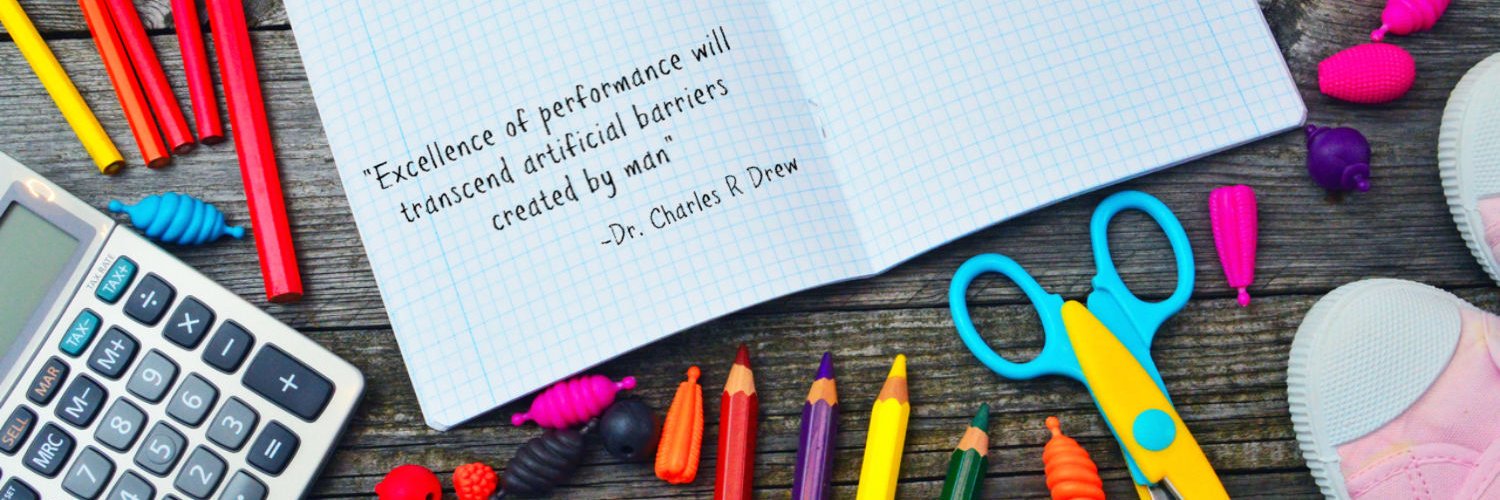 "Excellence of performance will
transcend artificial barriers
created by man"
-Dr. Charles R Drew
TAX RATE
TAX+
÷
×
−
+
TAX-
M+
9
6
3
=
MAR
M-
8
5
2
SELL
MRC
7
4